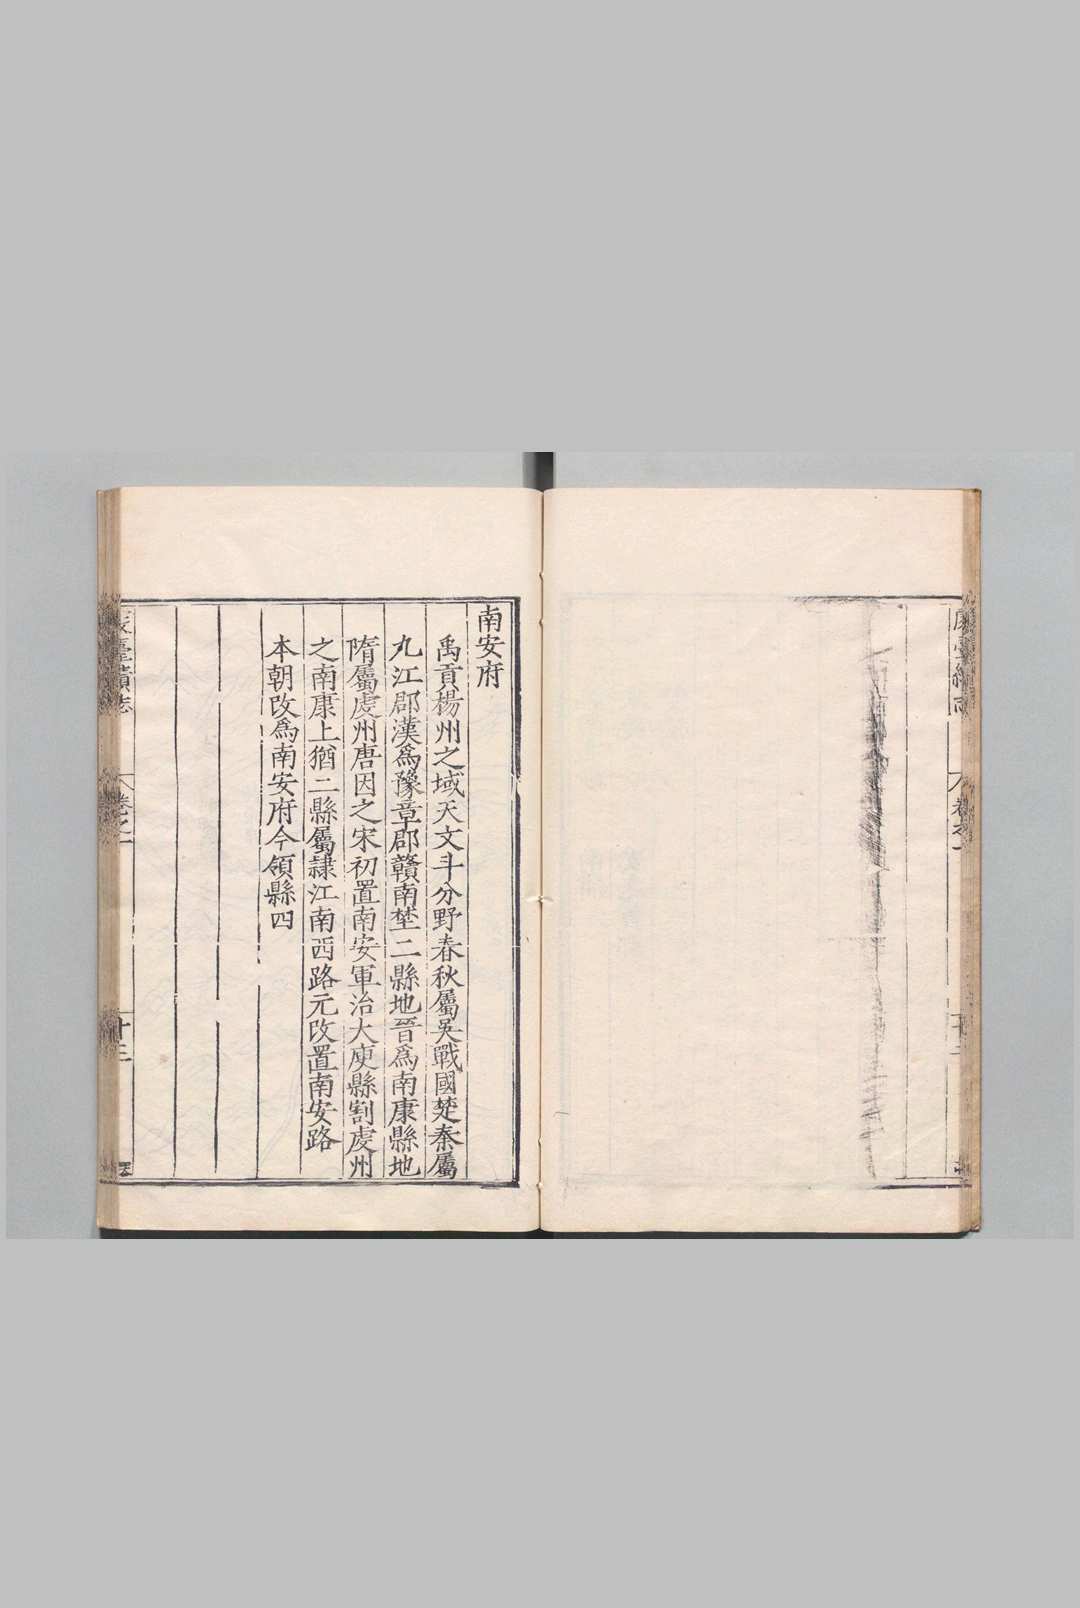 南安府
禹貢楊州之域天文斗分野春秋屬吳戰國楚秦屬
九江郡漢爲豫章郡贛南埜二縣地晉爲南康縣地
隋屬虔州唐因之宋初置南安軍治大庾縣割虔州
之南康上猶二縣屬隸江南西路元改置南安路
本朝改爲南安府今領縣四
臺續志
卷之一
十三